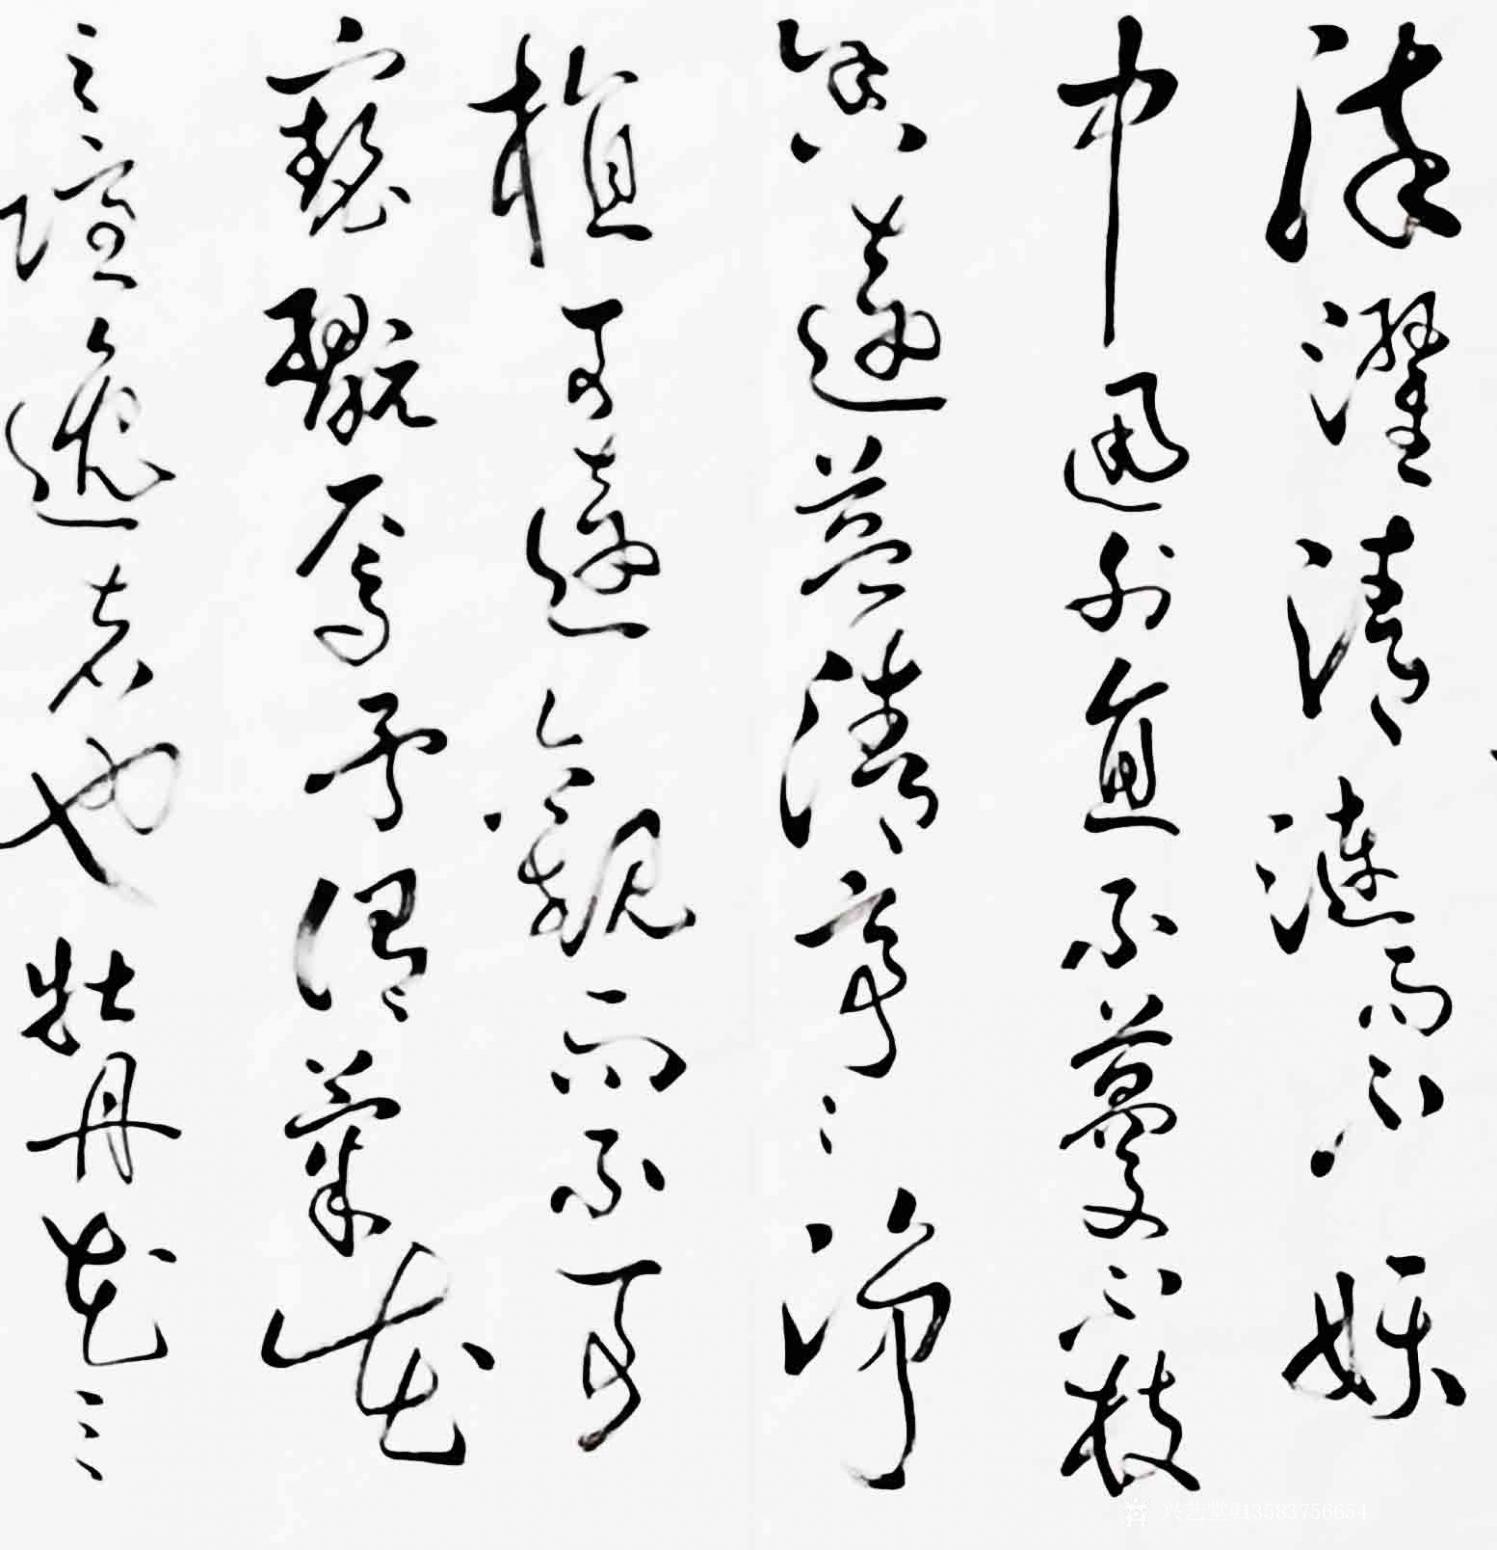 染濯清漣而不妖
中通外直不蔓不枝
香遠益清亭〻淨
植可遠觀而不可
褻翫焉予謂菊花
之隱逸者也牡丹花之